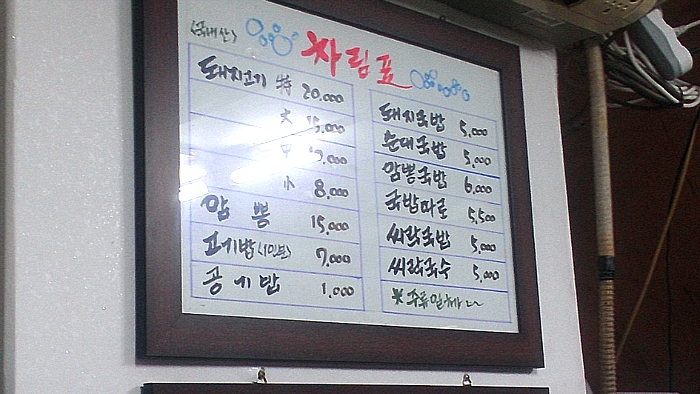 (국내산)
차림표
돼지고기 特 20,000
大 15,000
中
小 8,000
암뽕 15,000
고기밥(1인분) 7,000
공기밥 1,000
돼지국밥 5,000
순대국밥 5,000
암뽕국밥 6,000
국밥따로 5,500
씨락국밥 5,000
씨락국수 5,000
*주류일체~